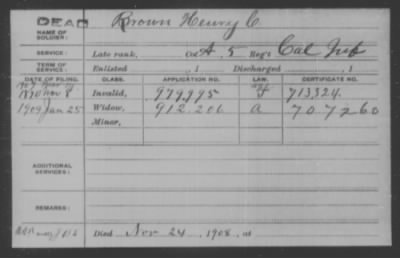 DEAD
NAME OF SOLDIER: Brown Henry C.
SERVICE: Late rank, Co. A, 5 Reg't Cal Inf
TERM OF SERVICE: Enlisted , 1 Discharged , 1
DATE OF FILING. CLASS. APPLICATION NO. LAW. CERTIFICATE NO.
Nov 8 Invalid, 979,995 713324
1909 Jan 25 Widow, 912.201 A 707260
Minor,
ADDITIONAL SERVICES:
REMARKS:
Died Nov 24, 1908, at